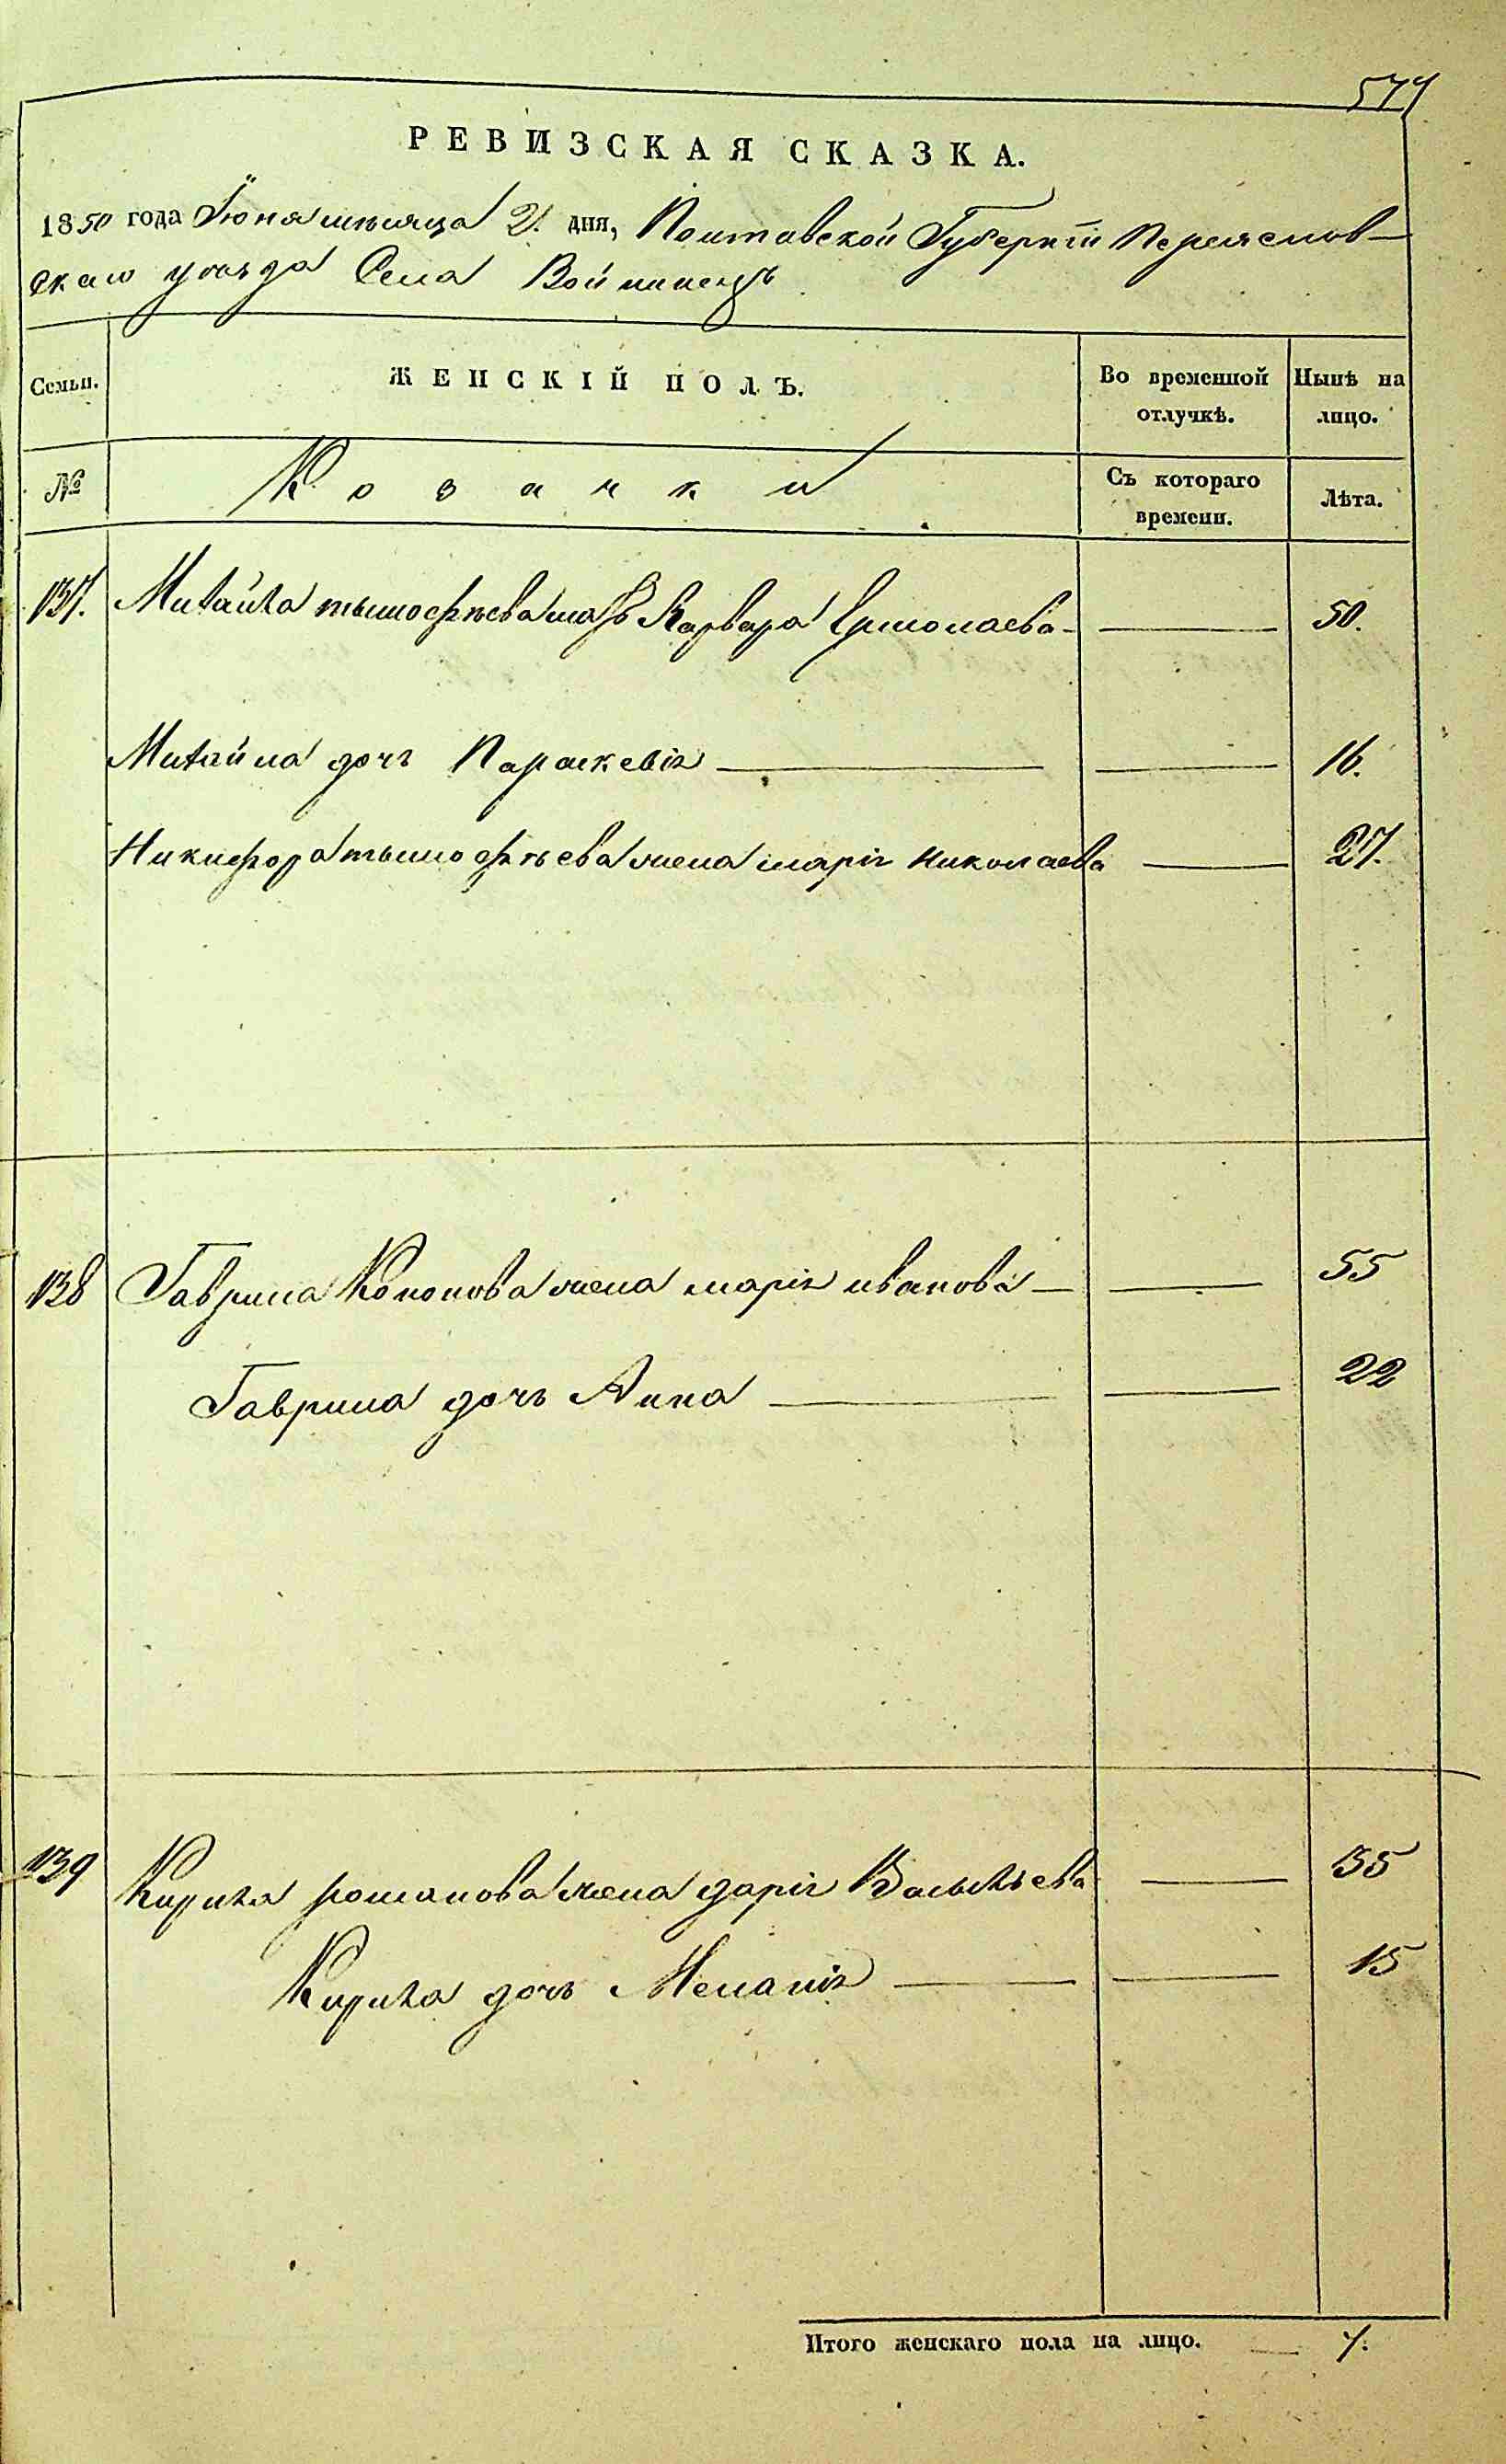 577
РЕВИЗСКАЯ СКАЗКА.
1850 года Іюня мѣсяца 2. дня, Полтавской Губерніи Переяслов-
скаго уѣзда Села Войтовецъ
Семьи. ЖЕНСКІЙ ПОЛЪ. Во временной отлучкѣ. Нынѣ на лицо.
№ Козачки Съ котораго времени. Лѣта.
137. Михайла тымофѣева Варвара Ермолаева 50.
Михайла дочь Параскевія 16.
Никифора тымофѣева жена марія Николаева 27.
138 Гаврила Кононова жена марія иванова 55
Гаврила дочь Анна 22
139 Кирила романова жена дарія Васильева 35
Кирила дочь Меланія 15
Итого женскаго пола на лицо. 7.